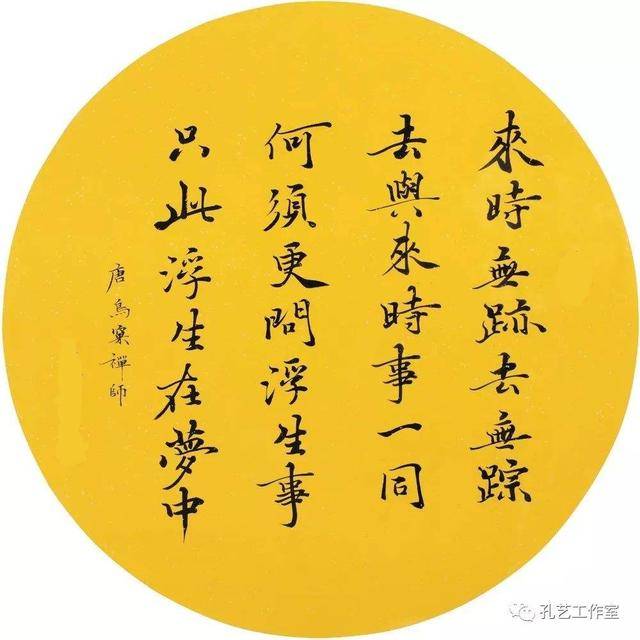 來時無跡去無踪
去與來時事一同
何須更問浮生事
只此浮生在夢中
唐鳥窠禪師
孔艺工作室